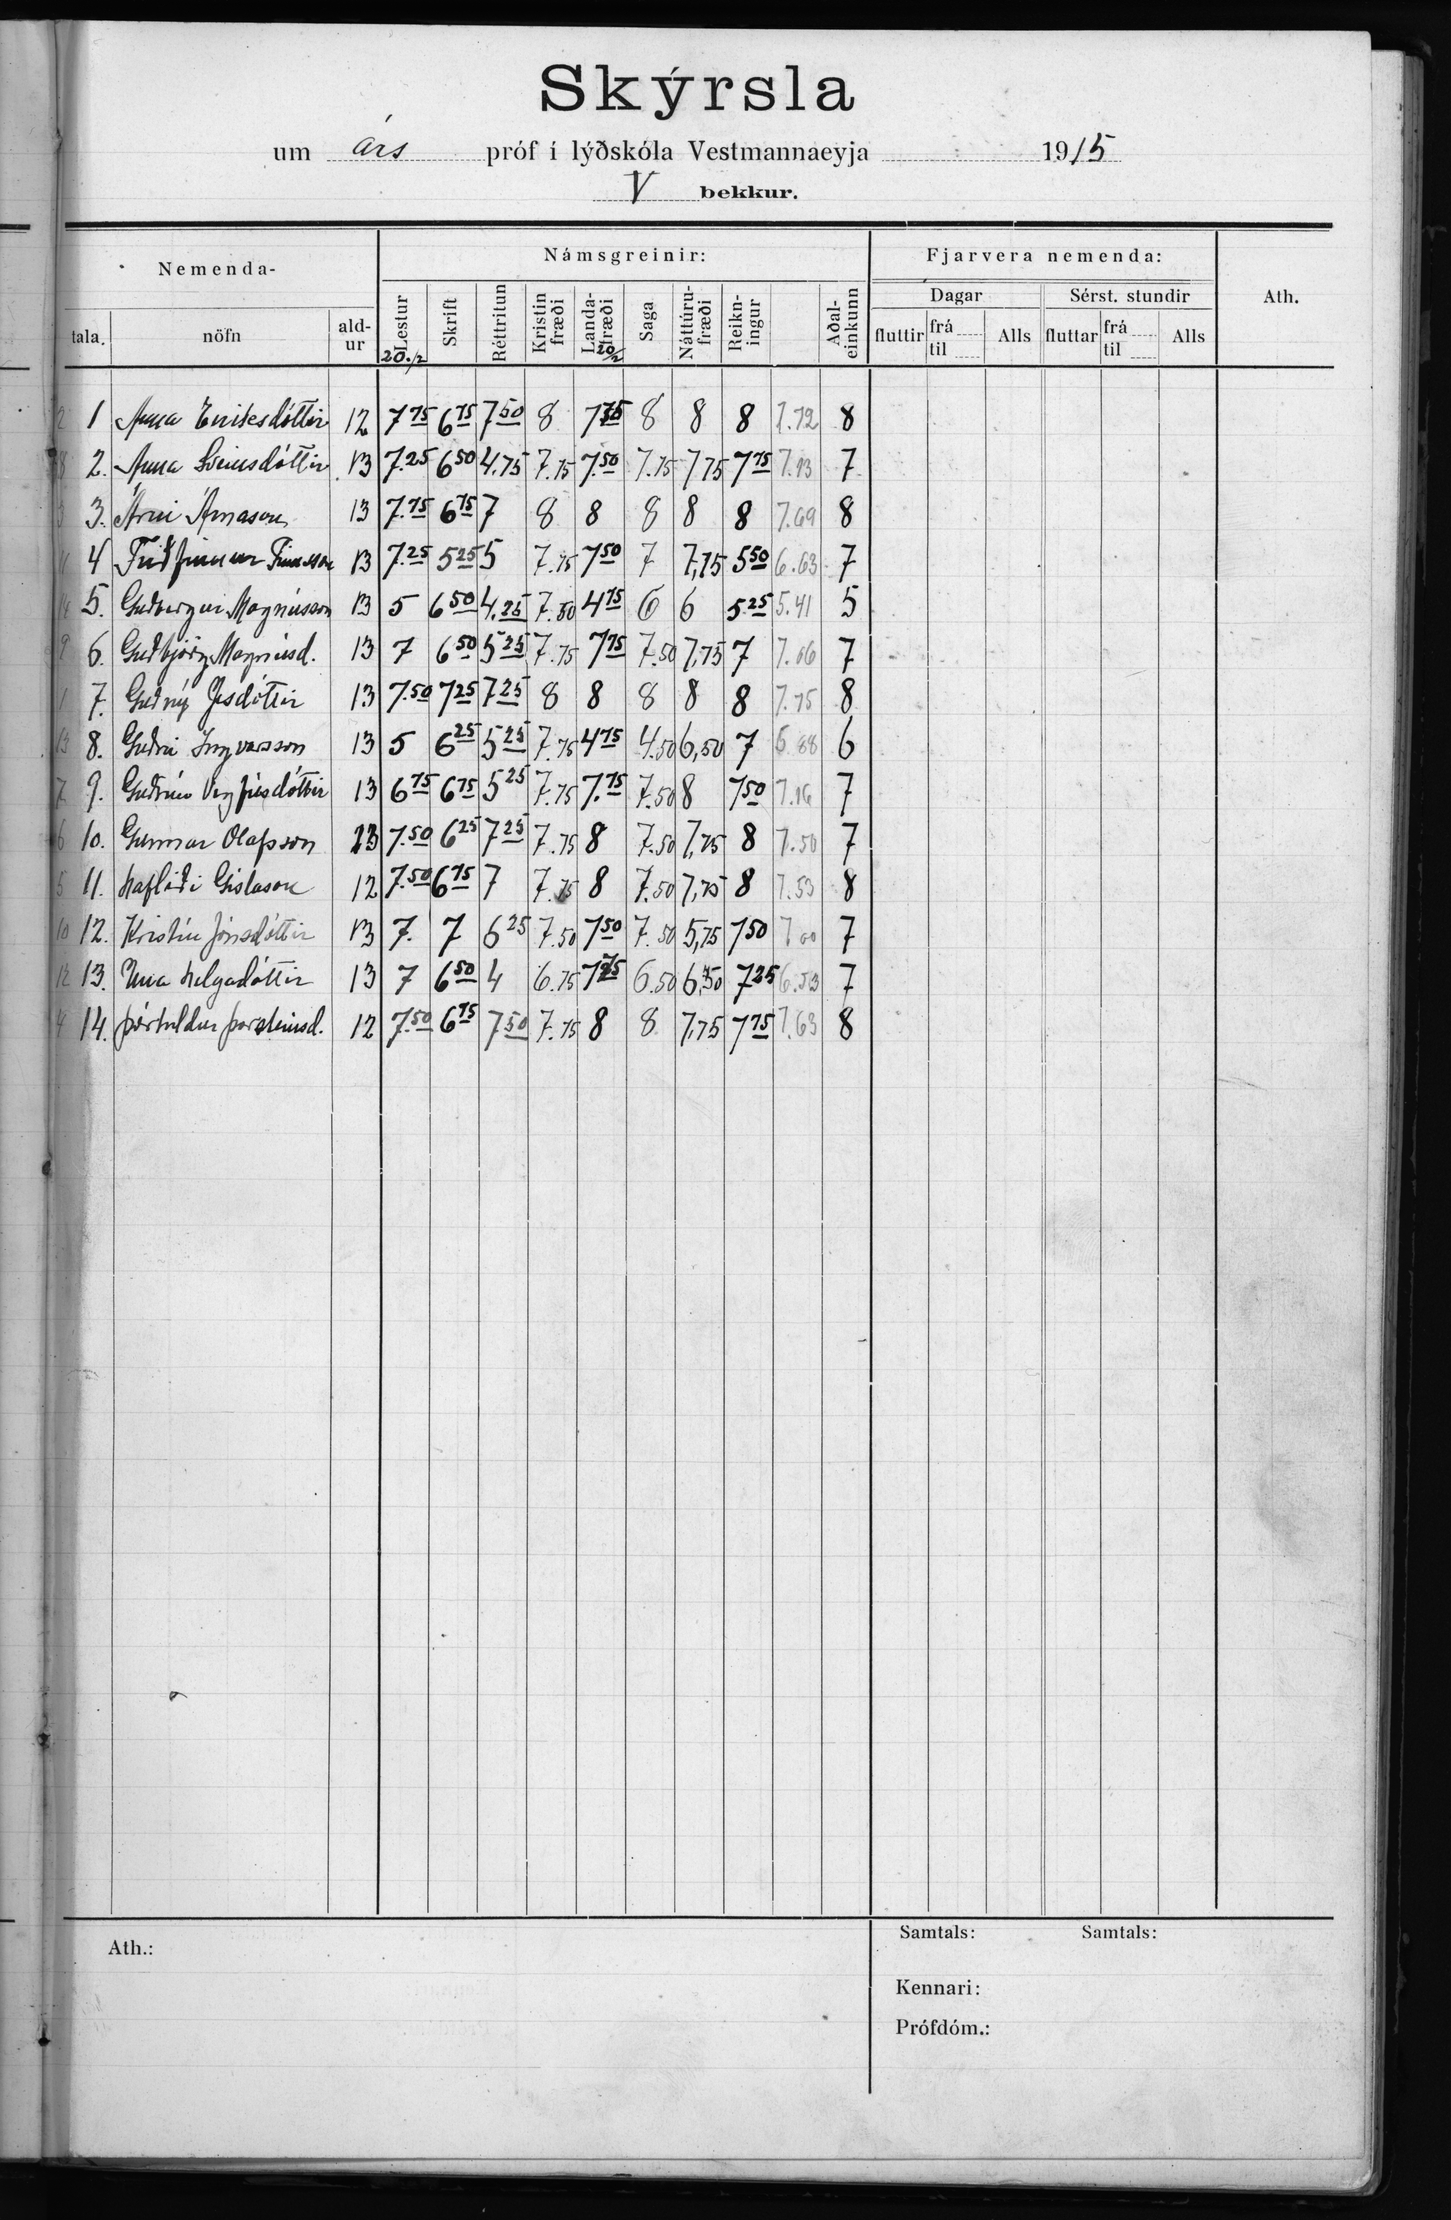 Skýrsla
um árs próf í lýðskóla Vestmannaeyja 1915
V bekkur.
Nemenda- Námsgreinir: Fjarvera nemenda: Ath.
Dagar Sérst. stundir
tala. nöfn ald-ur Lestur Skrift Réttritun Kristin fræði Landa-fræði Saga Náttúru-fræði Reikn-ingur Aðal-einkunn fluttir frá til Alls fluttar frá til Alls
20./2 20/2
2 1 Anna Eiríksdóttir 12 7 75 6 75 7 50 8 7 75 8 8 8 7.72 8
8 2. Anna Sveinsdóttir 13 7.25 6 50 4.75 7.75 7.50 7.75 7,75 7 75 7.13 7
3 3. Árni Árnason 13 7.75 6 75 7 8 8 8 8 8 7.69 8
4 Friðfinnur Finnsson 13 7.25 5 25 5 7.75 7 50 7 7,75 5 50 6.63 7
14 5. Guðbergur Magnússon 13 5 6 50 4.25 7.50 4 75 6 6 5 25 5.41 5
9 6. Guðbjörg Magnúsd. 13 7 6 50 5 25 7.75 7 75 7.50 7,75 7 7.06 7
1 7. Guðný Jesdóttir 13 7.50 7 25 7 25 8 8 8 8 8 7.75 8
13 8. Guðni Ingvarsson 13 5 6 25 5 25 7.75 4 75 4.50 6,50 7 5.88 6
7 9. Guðrún Vigfúsdóttir 13 6 75 6 75 5 25 7.75 7.75 7.50 8 7 50 7.16 7
6 10. Gunnar Olafsson 13 7.50 6 25 7 25 7.75 8 7.50 7,75 8 7.50 7
5 11. Hafliði Gíslason 12 7.50 6 75 7 7.75 8 7.50 7,75 8 7.53 8
10 12. Kristín Jónsdóttir 13 7. 7 6 25 7.50 7 50 7.50 5,75 7 50 7.00 7
12 13. Una Helgadóttir 13 7 6 50 4 6.75 7 75 6.50 6,50 7 25 6.53 7
4 14. Þórhildur Þorsteinsd. 12 7.50 6 75 7 50 7.75 8 8 7,75 7 75 7.63 8
Ath.: Samtals: Samtals:
Kennari:
Prófdóm.: